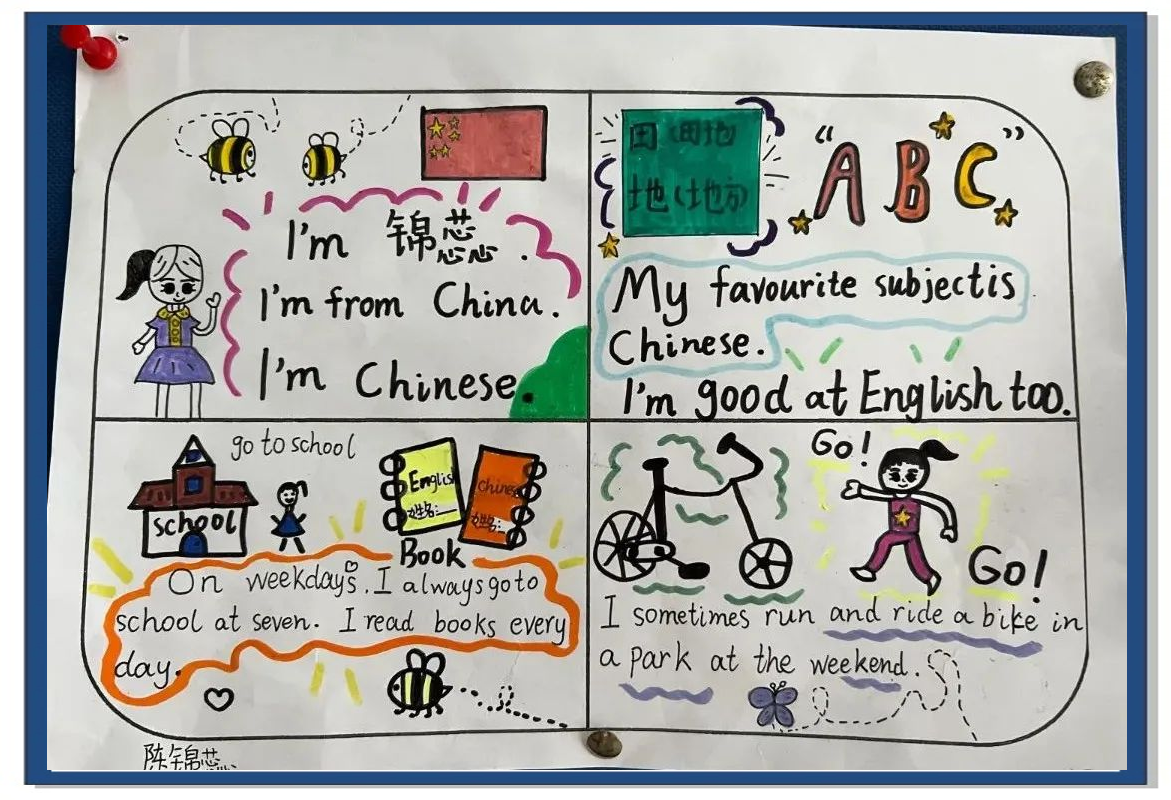 I'm 锦芯.
I'm from China.
I'm Chinese.
田(田地)
地(地方)
"ABC"
My favourite subject is
Chinese.
I'm good at English too.
go to school
school
English
姓名:
Chinese
姓名:
Book
On weekdays. I always go to
school at seven. I read books every
day.
Go!
Go!
I sometimes run and ride a bike in
a park at the weekend.
陈锦芯